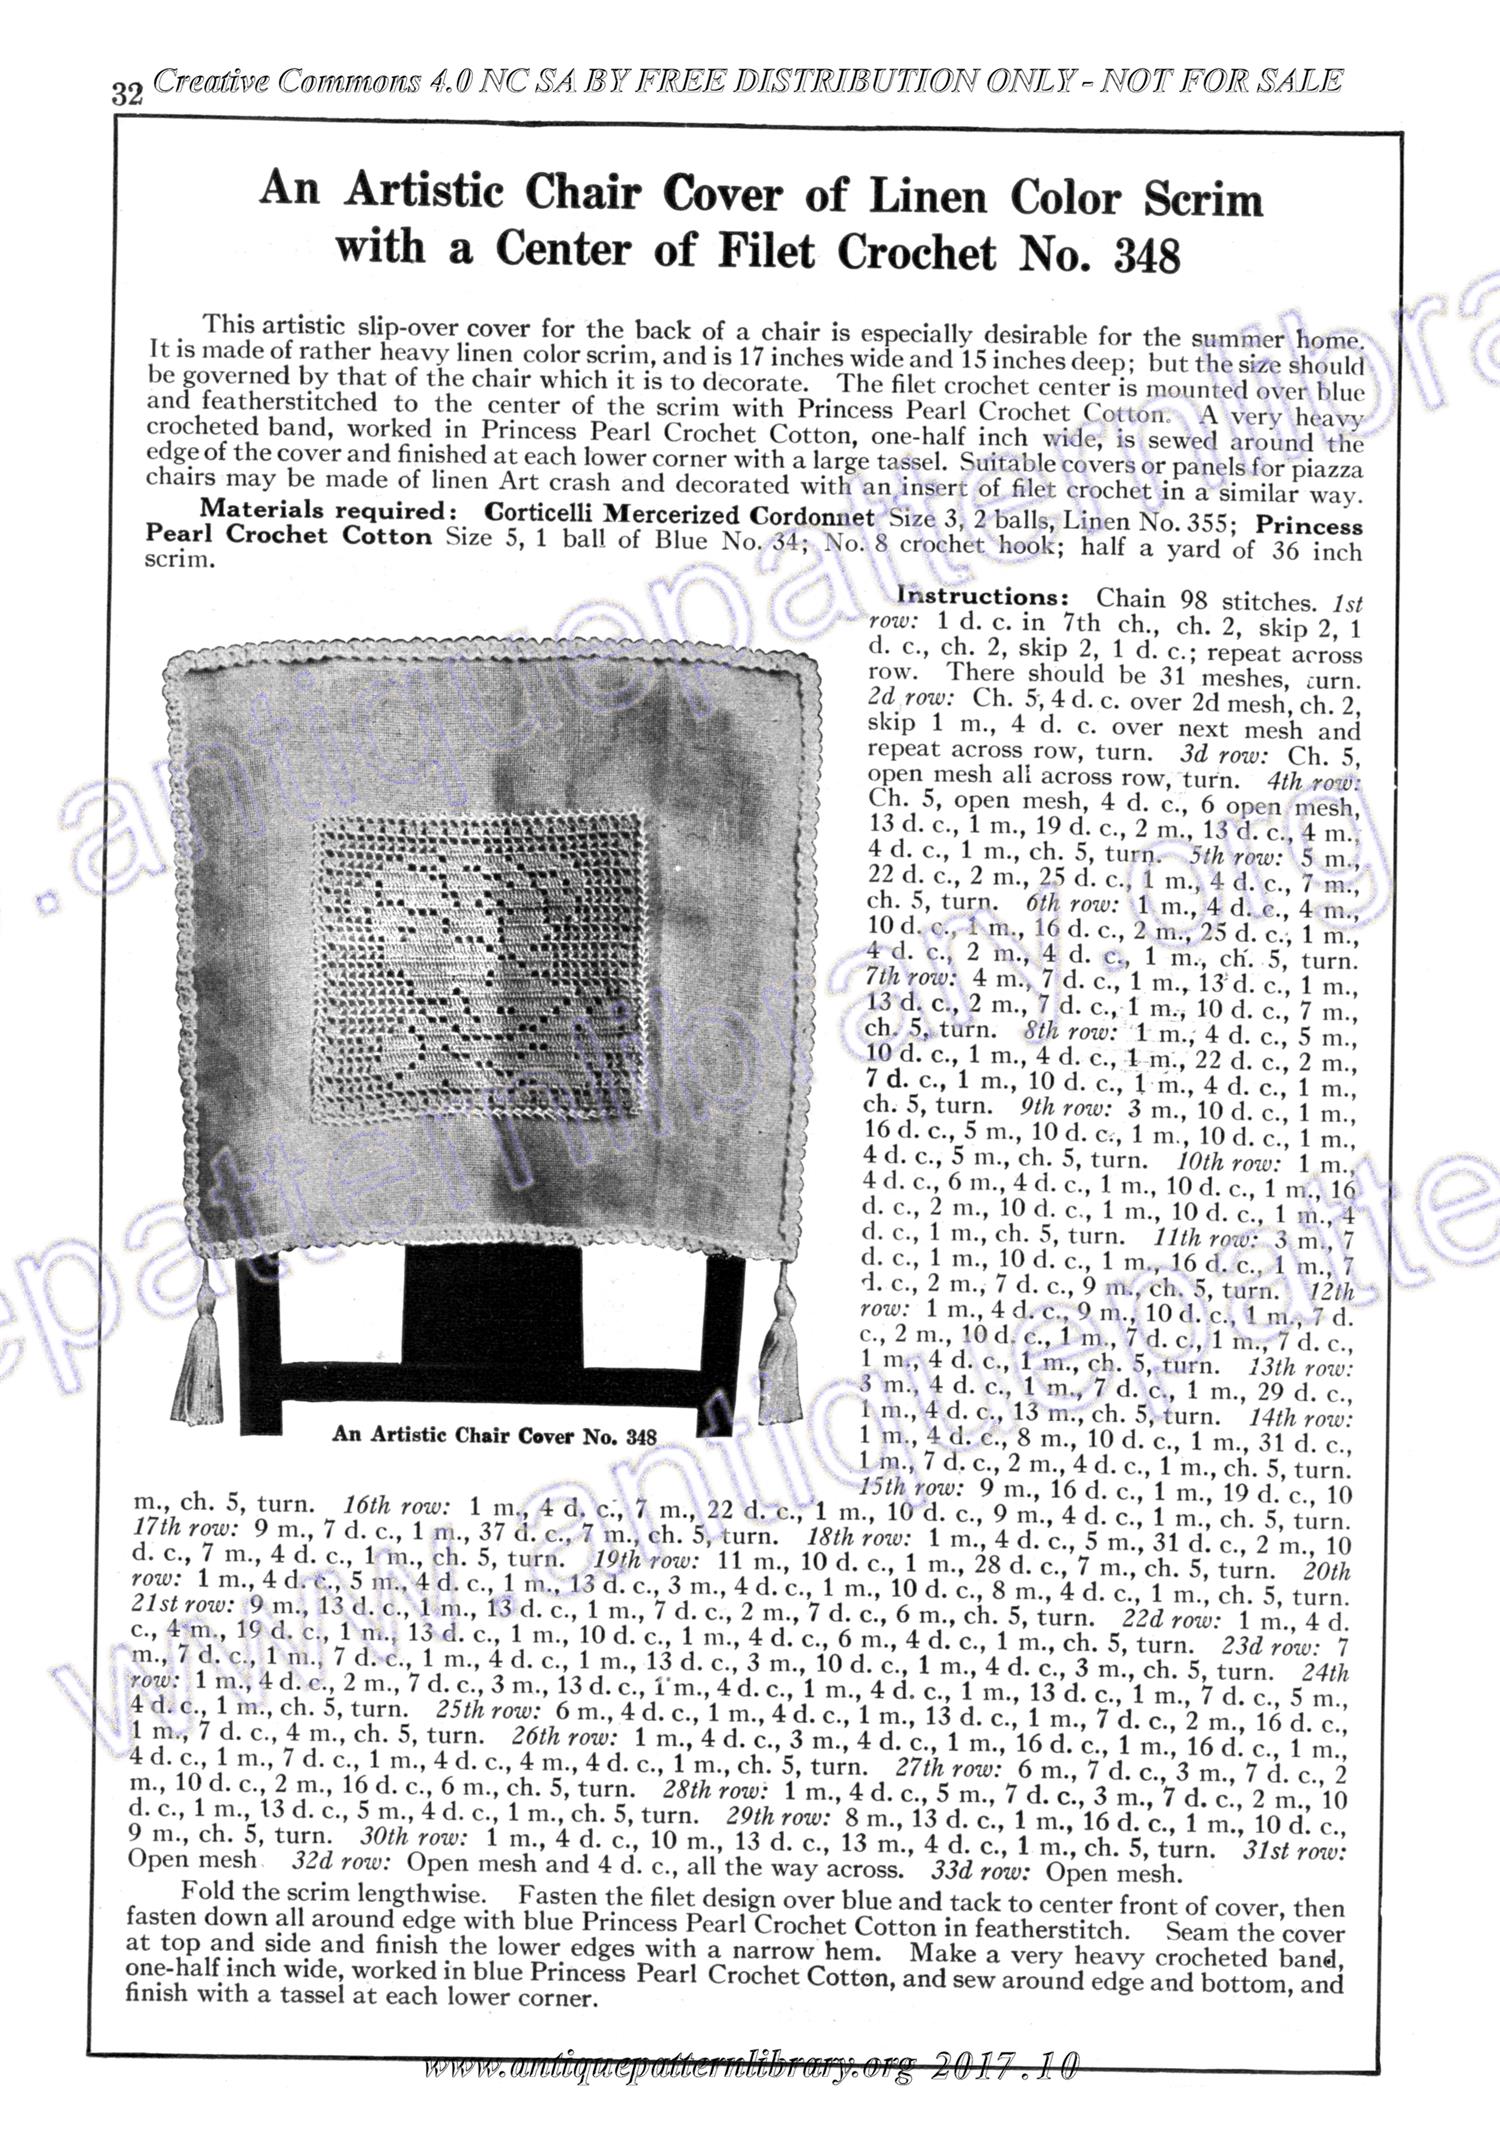 32 Creative Commons 4.0 NC SA BY FREE DISTRIBUTION ONLY - NOT FOR SALE
An Artistic Chair Cover of Linen Color Scrim
with a Center of Filet Crochet No. 348
This artistic slip-over cover for the back of a chair is especially desirable for the summer home.
It is made of rather heavy linen color scrim, and is 17 inches wide and 15 inches deep; but the size should
be governed by that of the chair which it is to decorate. The filet crochet center is mounted over blue
and featherstitched to the center of the scrim with Princess Pearl Crochet Cotton. A very heavy
crocheted band, worked in Princess Pearl Crochet Cotton, one-half inch wide, is sewed around the
edge of the cover and finished at each lower corner with a large tassel. Suitable covers or panels for piazza
chairs may be made of linen Art crash and decorated with an insert of filet crochet in a similar way.
Materials required: Corticelli Mercerized Cordonnet Size 3, 2 balls, Linen No. 355; Princess
Pearl Crochet Cotton Size 5, 1 ball of Blue No. 34; No. 8 crochet hook; half a yard of 36 inch
scrim.
Instructions: Chain 98 stitches. 1st
row: 1 d. c. in 7th ch., ch. 2, skip 2, 1
d. c., ch. 2, skip 2, 1 d. c.; repeat across
row. There should be 31 meshes, turn.
2d row: Ch. 5, 4 d. c. over 2d mesh, ch. 2,
skip 1 m., 4 d. c. over next mesh and
repeat across row, turn. 3d row: Ch. 5,
open mesh all across row, turn. 4th row:
Ch. 5, open mesh, 4 d. c., 6 open mesh,
13 d. c., 1 m., 19 d. c., 2 m., 13 d. c., 4 m.,
4 d. c., 1 m., ch. 5, turn. 5th row: 5 m.,
22 d. c., 2 m., 25 d. c., 1 m., 4 d. c., 7 m.,
ch. 5, turn. 6th row: 1 m., 4 d. c., 4 m.,
10 d. c., 1 m., 16 d. c., 2 m., 25 d. c., 1 m.,
4 d. c., 2 m., 4 d. c., 1 m., ch. 5, turn.
7th row: 4 m., 7 d. c., 1 m., 13 d. c., 1 m.,
13 d. c., 2 m., 7 d. c., 1 m., 10 d. c., 7 m.,
ch. 5, turn. 8th row: 1 m., 4 d. c., 5 m.,
10 d. c., 1 m., 4 d. c., 1 m., 22 d. c., 2 m.,
7 d. c., 1 m., 10 d. c., 1 m., 4 d. c., 1 m.,
ch. 5, turn. 9th row: 3 m., 10 d. c., 1 m.,
16 d. c., 5 m., 10 d. c., 1 m., 10 d. c., 1 m.,
4 d. c., 5 m., ch. 5, turn. 10th row: 1 m.,
4 d. c., 6 m., 4 d. c., 1 m., 10 d. c., 1 m., 16
d. c., 2 m., 10 d. c., 1 m., 10 d. c., 1 m., 4
d. c., 1 m., ch. 5, turn. 11th row: 3 m., 7
d. c., 1 m., 10 d. c., 1 m., 16 d. c., 1 m., 7
d. c., 2 m., 7 d. c., 9 m., ch. 5, turn. 12th
row: 1 m., 4 d. c., 9 m., 10 d. c., 1 m., 7 d.
c., 2 m., 10 d. c., 1 m., 7 d. c., 1 m., 7 d. c.,
1 m., 4 d. c., 1 m., ch. 5, turn. 13th row:
3 m., 4 d. c., 1 m., 7 d. c., 1 m., 29 d. c.,
1 m., 4 d. c., 13 m., ch. 5, turn. 14th row:
1 m., 4 d. c., 8 m., 10 d. c., 1 m., 31 d. c.,
1 m., 7 d. c., 2 m., 4 d. c., 1 m., ch. 5, turn.
15th row: 9 m., 16 d. c., 1 m., 19 d. c., 10
An Artistic Chair Cover No. 348
m., ch. 5, turn. 16th row: 1 m., 4 d. c., 7 m., 22 d. c., 1 m., 10 d. c., 9 m., 4 d. c., 1 m., ch. 5, turn.
17th row: 9 m., 7 d. c., 1 m., 37 d. c., 7 m., ch. 5, turn. 18th row: 1 m., 4 d. c., 5 m., 31 d. c., 2 m., 10
d. c., 7 m., 4 d. c., 1 m., ch. 5, turn. 19th row: 11 m., 10 d. c., 1 m., 28 d. c., 7 m., ch. 5, turn. 20th
row: 1 m., 4 d. c., 5 m., 4 d. c., 1 m., 13 d. c., 3 m., 4 d. c., 1 m., 10 d. c., 8 m., 4 d. c., 1 m., ch. 5, turn.
21st row: 9 m., 13 d. c., 1 m., 13 d. c., 1 m., 7 d. c., 2 m., 7 d. c., 6 m., ch. 5, turn. 22d row: 1 m., 4 d.
c., 4 m., 19 d. c., 1 m., 13 d. c., 1 m., 10 d. c., 1 m., 4 d. c., 6 m., 4 d. c., 1 m., ch. 5, turn. 23d row: 7
m., 7 d. c., 1 m., 7 d. c., 1 m., 4 d. c., 1 m., 13 d. c., 3 m., 10 d. c., 1 m., 4 d. c., 3 m., ch. 5, turn. 24th
row: 1 m., 4 d. c., 2 m., 7 d. c., 3 m., 13 d. c., 1 m., 4 d. c., 1 m., 4 d. c., 1 m., 13 d. c., 1 m., 7 d. c., 5 m.,
4 d. c., 1 m., ch. 5, turn. 25th row: 6 m., 4 d. c., 1 m., 4 d. c., 1 m., 13 d. c., 1 m., 7 d. c., 2 m., 16 d. c.,
1 m., 7 d. c., 4 m., ch. 5, turn. 26th row: 1 m., 4 d. c., 3 m., 4 d. c., 1 m., 16 d. c., 1 m., 16 d. c., 1 m.,
4 d. c., 1 m., 7 d. c., 1 m., 4 d. c., 4 m., 4 d. c., 1 m., ch. 5, turn. 27th row: 6 m., 7 d. c., 3 m., 7 d. c., 2
m., 10 d. c., 2 m., 16 d. c., 6 m., ch. 5, turn. 28th row: 1 m., 4 d. c., 5 m., 7 d. c., 3 m., 7 d. c., 2 m., 10
d. c., 1 m., 13 d. c., 5 m., 4 d. c., 1 m., ch. 5, turn. 29th row: 8 m., 13 d. c., 1 m., 16 d. c., 1 m., 10 d. c.,
9 m., ch. 5, turn. 30th row: 1 m., 4 d. c., 10 m., 13 d. c., 13 m., 4 d. c., 1 m., ch. 5, turn. 31st row:
Open mesh. 32d row: Open mesh and 4 d. c., all the way across. 33d row: Open mesh.
Fold the scrim lengthwise. Fasten the filet design over blue and tack to center front of cover, then
fasten down all around edge with blue Princess Pearl Crochet Cotton in featherstitch. Seam the cover
at top and side and finish the lower edges with a narrow hem. Make a very heavy crocheted band,
one-half inch wide, worked in blue Princess Pearl Crochet Cotton, and sew around edge and bottom, and
finish with a tassel at each lower corner.
www.antiquepatternlibrary.org 2017.10
www.antiquepatternlibrary.org